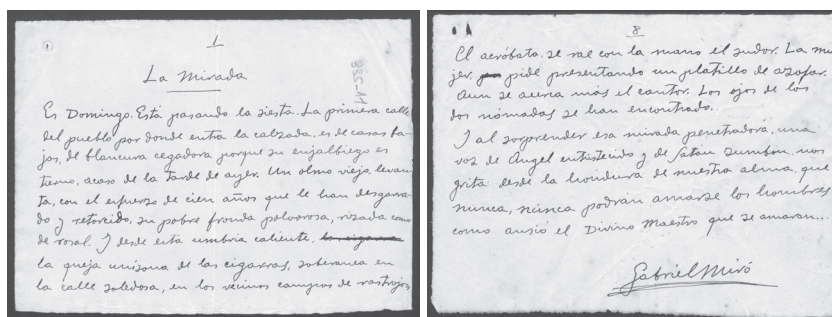 1
La Mirada
Es Domingo. Está pasando la siesta. La primera calle
del pueblo por donde entra la calzada, es de casas ba-
jas, de blancura cegadora porque su enjalbiego es
tierno, acaso de la tarde de ayer. Un olmo viejo, levan
ta, con el esfuerzo de cien años que le han desgarra-
do y retorcido, su pobre fronda polvorosa, rizada como
de rosal. Y desde esta umbría caliente,
la queja unísona de las cigarras, soberanea en
la calle soledosa, en los vecinos campos de rastrojos
8
El acróbata, se rae con la mano el sudor. La mu
jer, pide presentando un platillo de azófar.
Aun se acerca más el cantor. Los ojos de los
dos nómadas se han encontrado...
Y al sorprender esa mirada penetradora, una
voz de Ángel entristecido y de Satán zumbón, nos
grita desde la hondura de nuestra alma, que
nunca, nunca podrán amarse los hombres
como ansió el Divino Maestro que se amaran...
Gabriel Miró